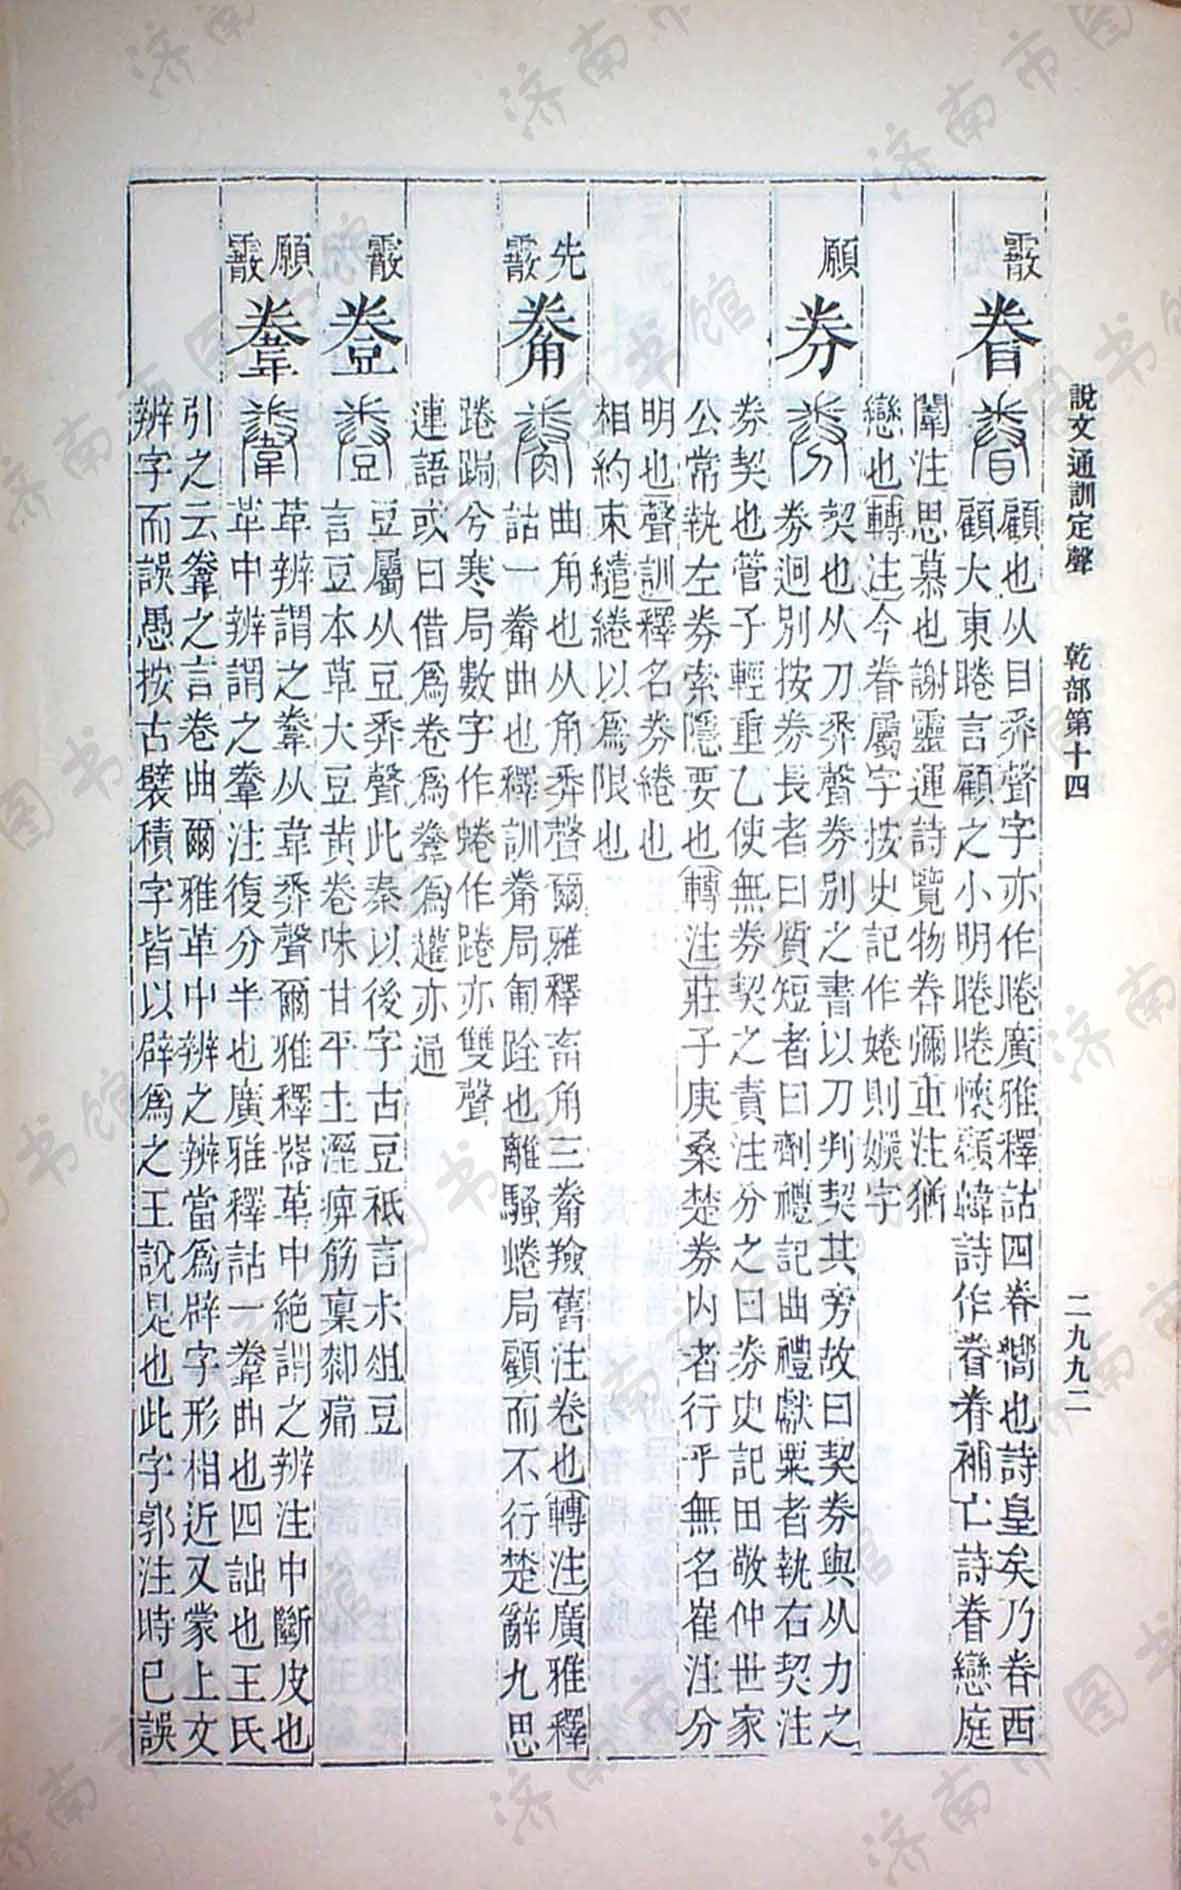 說文通訓定聲 乾部第十四 二九九二
霰
眷
顧也从目𢍏聲字亦作睠廣雅釋詁四眷嚮也詩皇矣乃眷西
顧大東睠言顧之小明睠睠懷顧韓詩作眷眷補亡詩眷戀庭
闈注思慕也謝靈運詩覽物眷彌重注猶
戀也轉注今眷屬字按史記作婘則𡢃字
願
券
契也从刀𢍏聲券別之書以刀判契其旁故曰契券與从力之
券迥別按券長者曰質短者曰劑禮記曲禮獻粟者執右契注
券契也管子輕重乙使無券契之責注分之曰券史記田敬仲世家
公常執左券索隱要也轉注莊子庚桑楚券內者行乎無名崔注分
明也聲訓釋名券綣也
相約束繾綣以為限也
先
霰
觠
曲角也从角𢍏聲爾雅釋畜角三觠羷舊注卷也轉注廣雅釋
詁一觠曲也釋訓觠局匍跧也離騷蜷局顧而不行楚辭九思
踡跼兮寒局數字作蜷作踡亦雙聲
連語或曰借為卷為韏為趯亦通
霰
䇍
豆屬从豆𢍏聲此秦以後字古豆祇言尗俎豆
言豆本草大豆黃卷味甘平主溼痹筋攣膝痛
願
霰
韏
革辨謂之韏从韋𢍏聲爾雅釋器革中絕謂之辨注中斷皮也
革中辨謂之韏注復分半也廣雅釋詁一韏曲也四詘也王氏
引之云韏之言卷曲爾雅革中辨之辨當為辟字形相近又蒙上文
辨字而誤愚按古襞積字皆以辟為之王說是也此字郭注時已誤